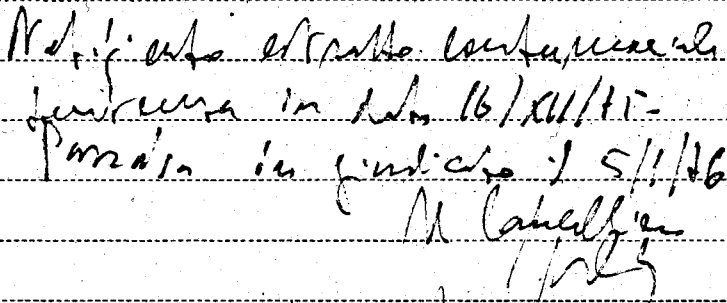 Notificato estratto contumaciale
sentenza in data 16/XII/75-
Passata in giudicato il 5/1/76
Il Cancelliere